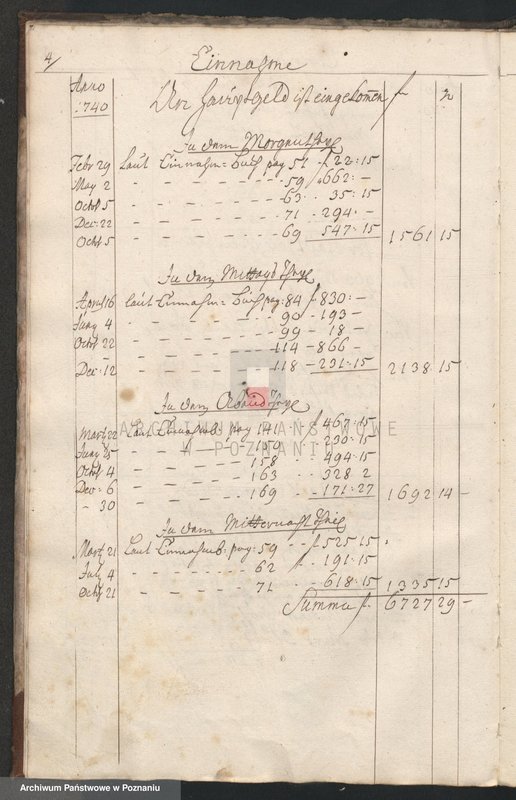 4/ Einnahme
Anno
1740 Von Haupt-Geld ist eingekomen f
In dem Morgenthey
Febr 29 Laut Einnahm-Buch pag 51 f 22:15
May 2 - - - - 59 f 662:-
Octob 5 - - - - 63 35:15
Dec: 22 - - - - 71 - 294 -
Octob 5 - - - - 69 547:15 1561 15
In dem Mittags
April 16 Laut Einnahm-Buch pag: 84 f 830:-
Juny 4 - - - - 90 - 193 -
Octob 22 - - - - 99 - 18 -
- - - - 114 - 866 -
Dec: 12 - - - - 118 - 231:15 2138 15
In dem Abend
Marty 22 Laut Einnahmb: pag 141 f 467:15
Juny 25 - - - - 150 230:15
Octob 4 - - - - 158 494:15
Dec: 6 - - - - 163 328 2
- 30 - - - - 169 - 171:27 1692 14 -
In dem Mitternacht
Marty 21 Laut Einnahmb: pag: 59 f 525:15
July 4 - - - - 62 f 191:15
Octob 21 - - - - 71 - 618:15 1335 15
Summa f 6727 29 -
ARCHIWUM PAŃSTWOWE
W POZNANIU
Archiwum Państwowe w Poznaniu